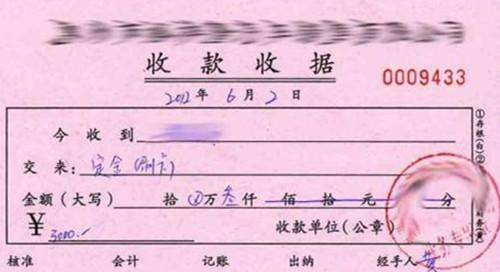 收款收据
0009433
2012年6月2日
今收到
交来：定金(刷卡)
金额（大写） 拾 万叁仟 佰 拾 元 分
¥ 3000.- 收款单位（公章）
核准 会计 记账 出纳 经手人 黄
①存根(白)②